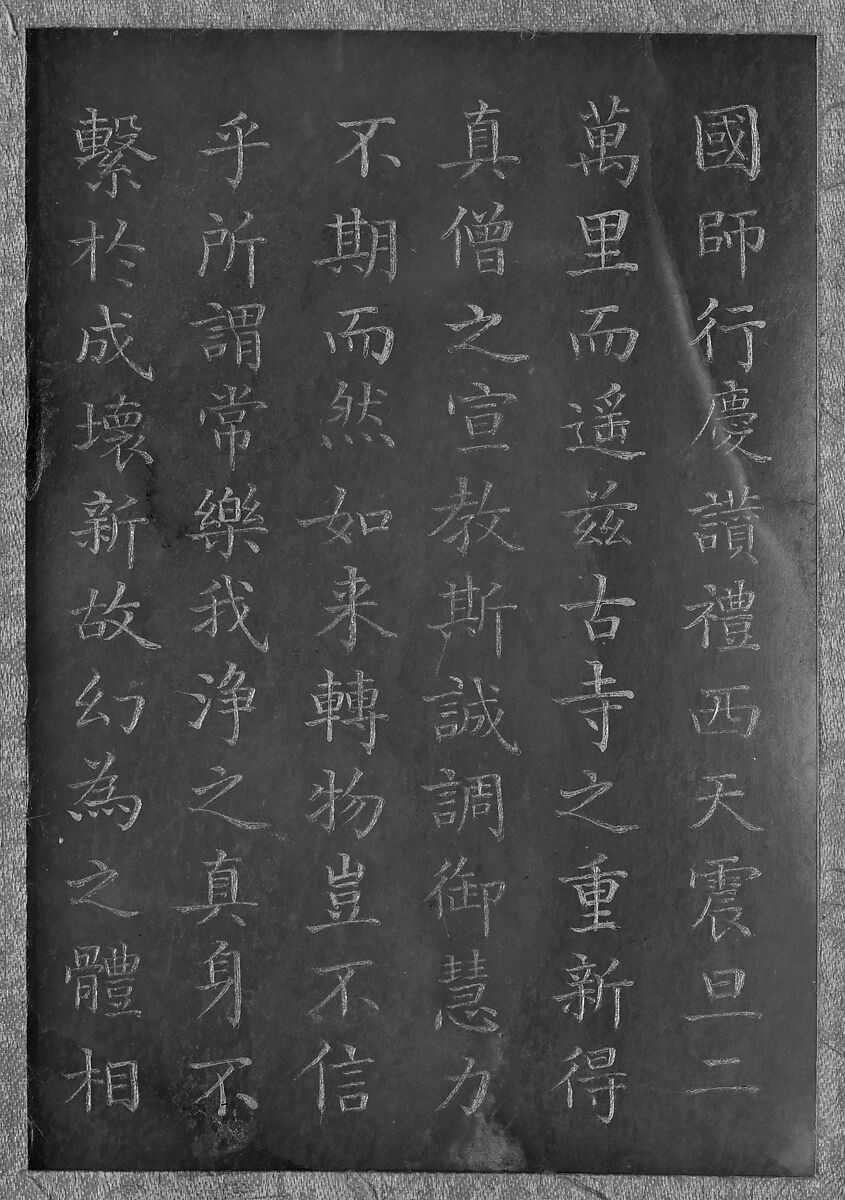 國師行慶讚禮西天震旦二
萬里而遥兹古寺之重新得
真僧之宣教斯誠調御慧力
不期而然如来轉物豈不信
乎所謂常樂我浄之真身不
繫於成壞新故幻為之體相